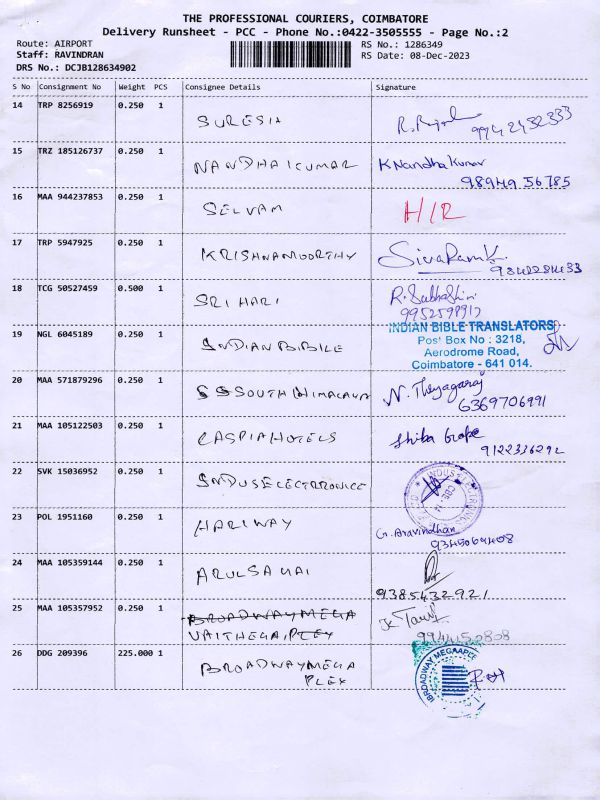 THE PROFESSIONAL COURIERS, COIMBATORE
Delivery Runsheet - PCC - Phone No.:0422-3505555 - Page No.:2
Route: AIRPORT
RS No.: 1286349
Staff: RAVINDRAN
RS Date: 08-Dec-2023
DRS No.: DCJB128634902
S No Consignment No Weight PCS Consignee Details Signature
14 TRP 8256919 0.250 1 SURESH
15 TRZ 185126737 0.250 1 NANDHAKUMAR K Nandha Kumar
98949 56785
16 MAA 944237853 0.250 1 SELVAM H/R
17 TRP 5947925 0.250 1 KRISHNAMOORTHY
18 TCG 50527459 0.500 1 SRI HARI R. Subhashini
9952598917
19 NGL 6045189 0.250 1 INDIAN BIBILE INDIAN BIBLE TRANSLATORS
Post Box No : 3218,
Aerodrome Road,
Coimbatore - 641 014.
20 MAA 571879296 0.250 1 SOUTH HIMALAYA N. Thyagaraj
6369706991
21 MAA 105122503 0.250 1 CASPIA HOTELS
9122336292
22 SVK 15036952 0.250 1 INDUS ELECTRRONICE
23 POL 1951160 0.250 1 HARIWAY G. Aravindhan
9345069408
24 MAA 105359144 0.250 1 ARULSAMAI
9385432921
25 MAA 105357952 0.250 1 BROADWAYMEGA
26 DDG 209396 225.000 1 BROADWAYMEGA
PLEX
BROADWAY MEGAPLEX